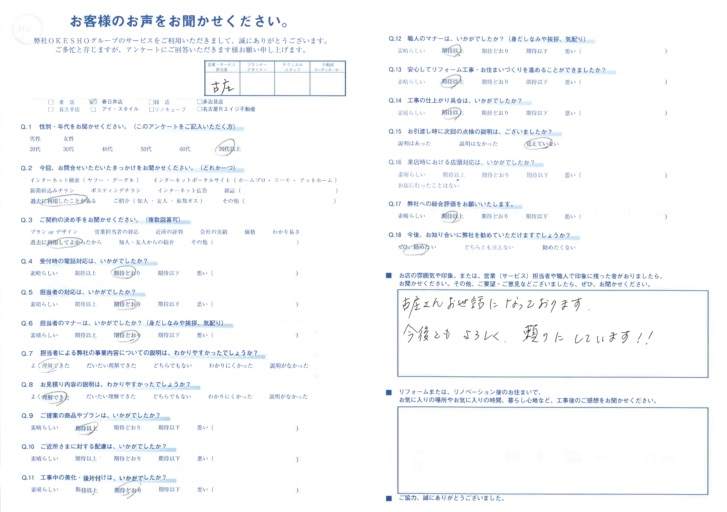 お客様のお声をお聞かせください。
弊社ＯＫＥＳＨＯグループのサービスをご利用いただきまして、誠にありがとうございます。
ご多忙と存じますが、アンケートにご回答いただきます様お願い申し上げます。
営業・サービス担当者 プランナーデザイナー テクニカルスタッフ 不動産コーディネーター
古庄
□ 本店 ☑ 春日井店 □緑店 □多治見店
□ 長久手店 □ アイ・スタイル □リノキューブ □名古屋Ｒエイジ不動産
Q.1 性別・年代をお聞かせください。（このアンケートをご記入いただく方）
男性 女性
20代 30代 40代 50代 60代 70代以上
Q.2 今回、お問合せいただいたきっかけをお聞かせください。（どれか一つ）
インターネット検索（ ヤフー・グーグル ） インターネットポータルサイト（ ホームプロ・スーモ・アットホーム ）
新聞折込みチラシ ポスティングチラシ インターネット広告 雑誌（ ）
過去に利用したことがある ご紹介（ 知人・友人・東邦ガス ） その他（ ）
Q.3 ご契約の決め手をお聞かせください。（複数回答可）
プラン or デザイン 営業担当者の対応 近所の評判 会社の実績 価格 わかり易さ
過去に利用してよかったから 知人・友人からの紹介 その他（ ）
Q.4 受付時の電話対応は、いかがでしたか？
素晴らしい 期待以上 期待どおり 期待以下 悪い（ ）
Q.5 担当者の対応は、いかがでしたか？
素晴らしい 期待以上 期待どおり 期待以下 悪い（ ）
Q.6 担当者のマナーは、いかがでしたか？（身だしなみや挨拶、気配り）
素晴らしい 期待以上 期待どおり 期待以下 悪い（ ）
Q.7 担当者による弊社の事業内容についての説明は、わかりやすかったでしょうか？
よく理解できた だいたい理解できた どちらでもない わかりにくかった 説明がなかった
Q.8 お見積り内容の説明は、わかりやすかったでしょうか？
よく理解できた だいたい理解できた どちらでもない わかりにくかった 説明がなかった
Q.9 ご提案の商品やプランは、いかがでしたか？
素晴らしい 期待以上 期待どおり 期待以下 悪い（ ）
Q.10 ご近所さまに対する配慮は、いかがでしたか？
素晴らしい 期待以上 期待どおり 期待以下 悪い（ ）
Q.11 工事中の美化・後片付けは、いかがでしたか？
素晴らしい 期待以上 期待どおり 期待以下 悪い（ ）
Q.12 職人のマナーは、いかがでしたか？（身だしなみや挨拶、気配り）
素晴らしい 期待以上 期待どおり 期待以下 悪い（ ）
Q.13 安心してリフォーム工事・お住まいづくりを進めることができましたか？
素晴らしい 期待以上 期待どおり 期待以下 悪い（ ）
Q.14 工事の仕上がり具合は、いかがでしたか？
素晴らしい 期待以上 期待どおり 期待以下 悪い（ ）
Q.15 お引渡し時に次回の点検の説明は、ございましたか？
説明はあった 説明はなかった 覚えていない
Q.16 来店時における店頭対応は、いかがでしたか？
素晴らしい 期待以上 期待どおり 期待以下 悪い（ ）
お店にわったことはない
Q.17 弊社への総合評価をお願いいたします。
素晴らしい 期待以上 期待どおり 期待以下 悪い（ ）
Q.18 今後、お知り合いに弊社を勧めていただけますでしょうか？
ぜひ、勧めたい どちらとも言えない 勧めたくない
■ お店の雰囲気や印象、または、営業（サービス）担当者や職人で印象に残った者がおりましたら、
お聞かせください。その他、ご要望・ご意見などございましたら、ぜひ、お聞かせください。
古庄さんお世話になっております。
今後とも よろしく、頼りにしています!!
■ リフォームまたは、リノベーション後のお住まいで、
お気に入りの場所やお気に入りの時間、暮らし心地など、工事後のご感想をお聞かせください。
■ ご協力、誠にありがとうございました。